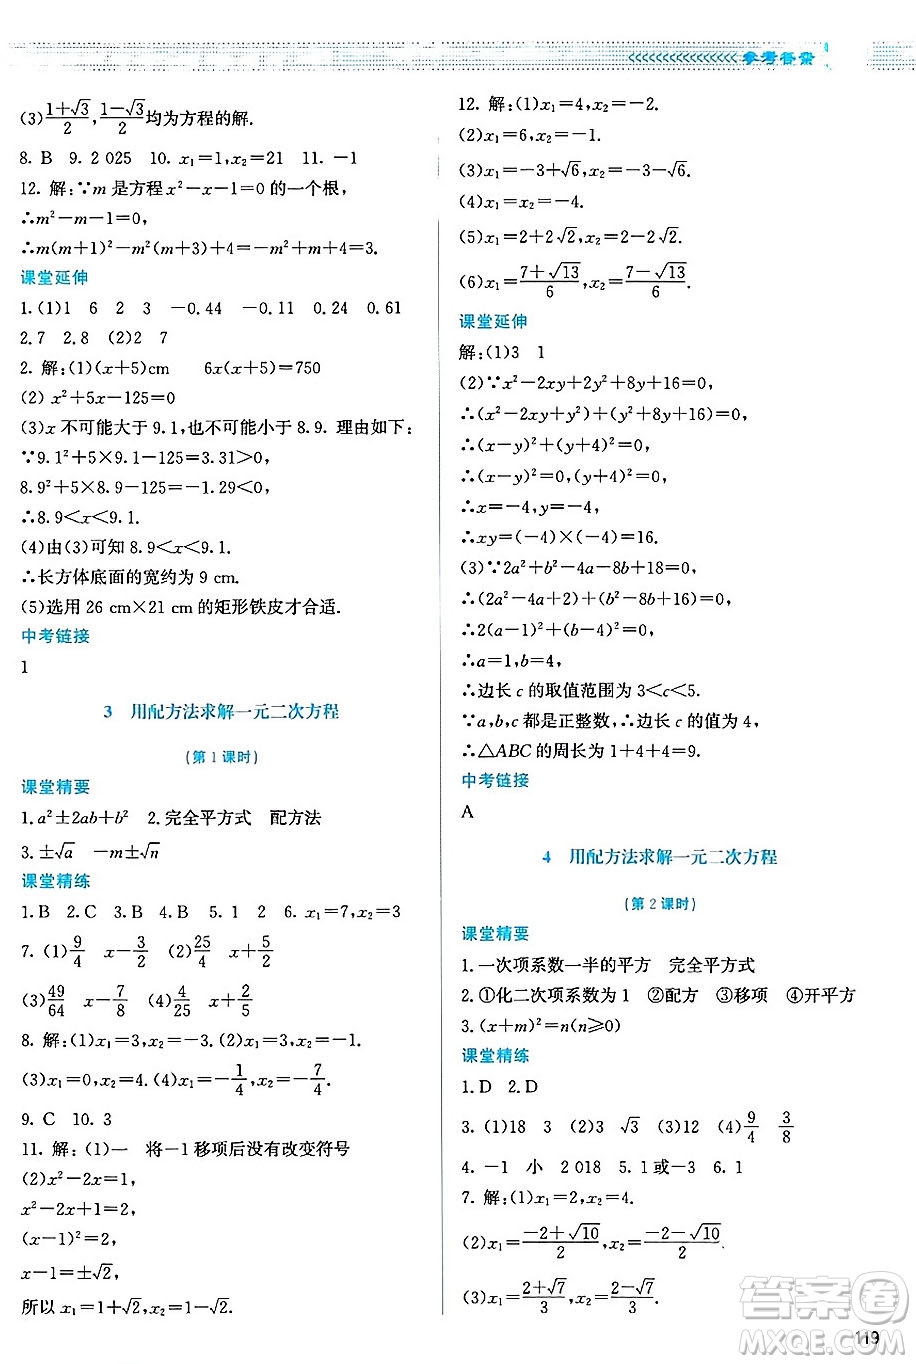 参考答案
(3)\frac{1+√3}{2},\frac{1-√3}{2}均为方程的解.
8. B　9. 2 025　10. x₁=1,x₂=21　11. -1
12. 解:∵m 是方程 x²-x-1=0 的一个根,
∴m²-m-1=0,
∴m(m+1)²-m²(m+3)+4=-m²+m+4=3.
课堂延伸
1. (1)1　6　2　3　-0.44　-0.11　0.24　0.61
2.7　2.8　(2)2　7
2. 解:(1)(x+5)cm　6x(x+5)=750
(2) x²+5x-125=0
(3)x 不可能大于 9.1,也不可能小于 8.9. 理由如下:
∵9.1²+5×9.1-125=3.31>0,
8.9²+5×8.9-125=-1.29<0,
∴8.9<x<9.1.
(4)由(3)可知 8.9<x<9.1.
∴长方体底面的宽约为 9 cm.
(5)选用 26 cm×21 cm 的矩形铁皮才合适.
中考链接
1
3　用配方法求解一元二次方程
(第 1 课时)
课堂精要
1. a²±2ab+b²　2. 完全平方式　配方法
3. ±√a　-m±√n
课堂精练
1. B　2. C　3. B　4. B　5. 1　2　6. x₁=7,x₂=3
7. (1)\frac{9}{4}　x-\frac{3}{2}　(2)\frac{25}{4}　x+\frac{5}{2}
(3)\frac{49}{64}　x-\frac{7}{8}　(4)\frac{4}{25}　x-\frac{2}{5}
8. 解:(1)x₁=1,x₂=-3. (2)x₁=3,x₂=-1.
(3)x₁=0,x₂=4. (4)x₁=-\frac{1}{4},x₂=-\frac{7}{4}.
9. C　10. 3
11. 解:(1)一　将-1 移项后没有改变符号
(2)x²-2x=1,
x²-2x+1=2,
(x-1)²=2,
x-1=±√2,
所以 x₁=1+√2,x₂=1-√2.
12. 解:(1)x₁=4,x₂=-2.
(2)x₁=6,x₂=-1.
(3)x₁=-3+√6,x₂=-3-√6.
(4)x₁=x₂=-4.
(5)x₁=2+2√2,x₂=2-2√2.
(6)x₁=\frac{7+√13}{6},x₂=\frac{7-√13}{6}.
课堂延伸
解:(1)3　1
(2)∵x²-2xy+2y²+8y+16=0,
∴(x²-2xy+y²)+(y²+8y+16)=0,
∴(x-y)²+(y+4)²=0,
∴(x-y)²=0,(y+4)²=0,
∴x=-4,y=-4,
∴xy=(-4)×(-4)=16.
(3)∵2a²+b²-4a-8b+18=0,
∴(2a²-4a+2)+(b²-8b+16)=0,
∴2(a-1)²+(b-4)²=0,
∴a=1,b=4,
∴边长 c 的取值范围为 3<c<5.
∵a,b,c 都是正整数,∴边长 c 的值为 4,
∴△ABC 的周长为 1+4+4=9.
中考链接
A
4　用配方法求解一元二次方程
(第 2 课时)
课堂精要
1. 一次项系数一半的平方　完全平方式
2. ①化二次项系数为 1　②配方　③移项　④开平方
3. (x+m)²=n(n≥0)
课堂精练
1. D　2. D
3. (1)18　3　(2)3　√3　(3)12　(4)\frac{9}{4}　\frac{3}{8}
4. -1　小　2 018　5. 1 或-3　6. 1
7. 解:(1)x₁=2,x₂=4.
(2)x₁=\frac{-2+√10}{2},x₂=\frac{-2-√10}{2}.
(3)x₁=\frac{2+√7}{3},x₂=\frac{2-√7}{3}.
答案圈
119